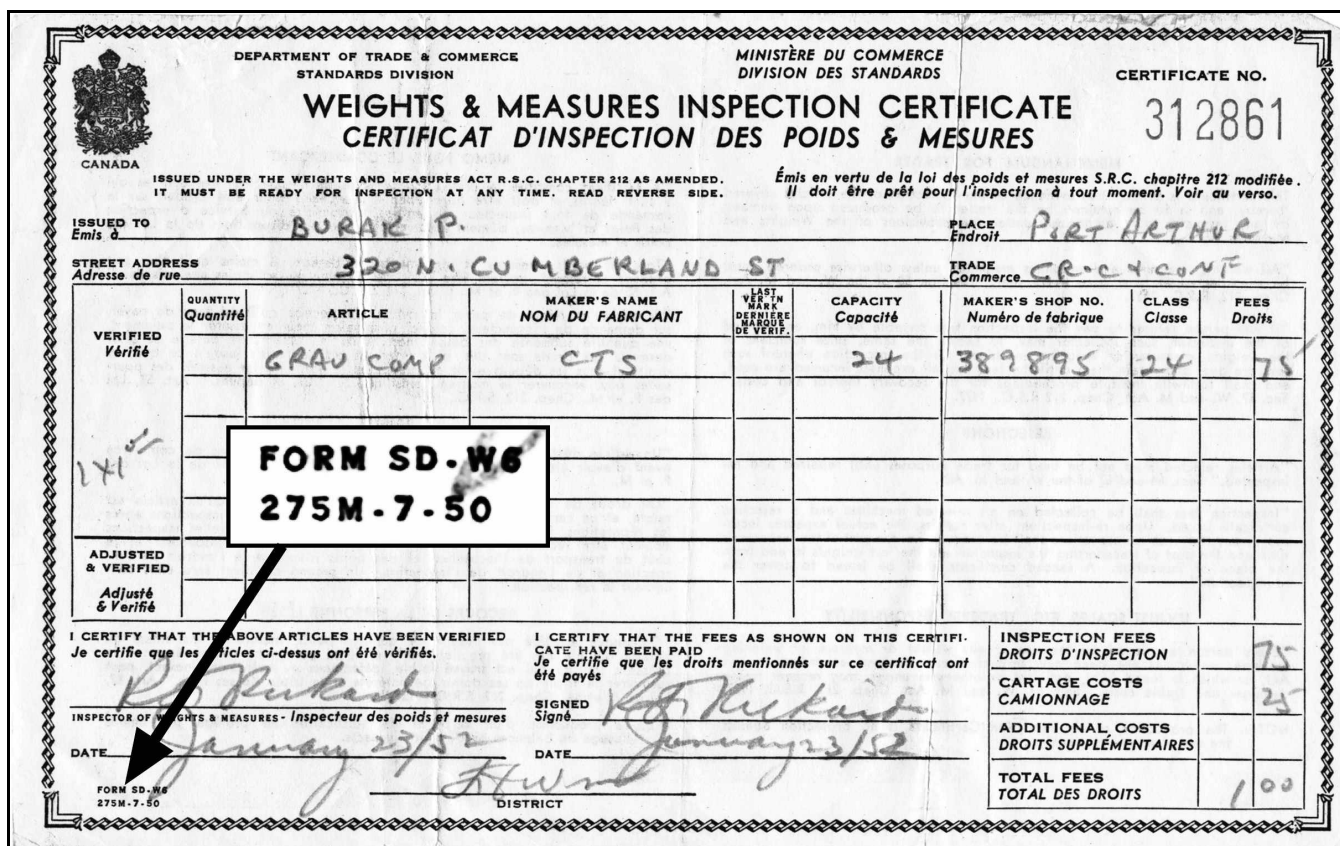 DEPARTMENT OF TRADE & COMMERCE
STANDARDS DIVISION
MINISTÈRE DU COMMERCE
DIVISION DES STANDARDS
CERTIFICATE NO.
312861
WEIGHTS & MEASURES INSPECTION CERTIFICATE
CERTIFICAT D'INSPECTION DES POIDS & MESURES
CANADA
ISSUED UNDER THE WEIGHTS AND MEASURES ACT R.S.C. CHAPTER 212 AS AMENDED.
IT MUST BE READY FOR INSPECTION AT ANY TIME. READ REVERSE SIDE.
Émis en vertu de la loi des poids et mesures S.R.C. chapitre 212 modifiée.
Il doit être prêt pour l'inspection à tout moment. Voir au verso.
ISSUED TO
Emis à BURAK P.
PLACE
Endroit PORT ARTHUR
STREET ADDRESS
Adresse de rue 320 N. CUMBERLAND ST.
TRADE
Commerce GR. C + CONF
QUANTITY
Quantité
ARTICLE
MAKER'S NAME
NOM DU FABRICANT
LAST
VER'TN
MARK
DERNIÈRE
MARQUE
DE VERIF.
CAPACITY
Capacité
MAKER'S SHOP NO.
Numéro de fabrique
CLASS
Classe
FEES
Droits
VERIFIED
Vérifié
GRAV COMP CTS 24 389895 24 75
FORM SD-W6
275M-7-50
ADJUSTED
& VERIFIED
Adjusté
& Verifié
I CERTIFY THAT THE ABOVE ARTICLES HAVE BEEN VERIFIED
Je certifie que les articles ci-dessus ont été vérifiés.
INSPECTOR OF WEIGHTS & MEASURES - Inspecteur des poids et mesures
DATE January 23/52
I CERTIFY THAT THE FEES AS SHOWN ON THIS CERTIFI-
CATE HAVE BEEN PAID
Je certifie que les droits mentionnés sur ce certificat ont
été payés
SIGNED
Signé
DATE January 23/52
DISTRICT
INSPECTION FEES
DROITS D'INSPECTION 75
CARTAGE COSTS
CAMIONNAGE 25
ADDITIONAL COSTS
DROITS SUPPLÉMENTAIRES
TOTAL FEES
TOTAL DES DROITS 1 00
FORM SD-W6
275M-7-50